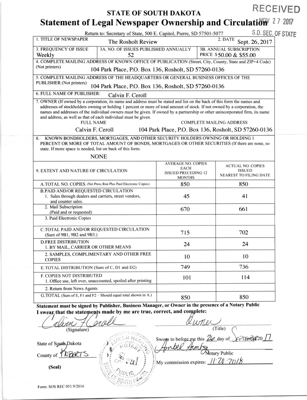 RECEIVED
NOV 27 2017
S.D. SEC. OF STATE
STATE OF SOUTH DAKOTA
Statement of Legal Newspaper Ownership and Circulation
Return to: Secretary of State, 500 E. Capitol, Pierre, SD 57501-5077
1. TITLE OF NEWSPAPER
The Rosholt Review
2. DATE
Sept. 26, 2017
3. FREQUENCY OF ISSUE
Weekly
3A. NO. OF ISSUES PUBLISHED ANNUALLY
52
3B. ANNUAL SUBSCRIPTION
PRICE $50.00 & $55.00
4. COMPLETE MAILING ADDRESS OF KNOWN OFFICE OF PUBLICATION (Street, City, County, State and ZIP+4 Code)
(Not printers)
104 Park Place, P.O. Box 136, Rosholt, SD 57260-0136
5. COMPLETE MAILING ADDRESS OF THE HEADQUARTERS OR GENERAL BUSINESS OFFICES OF THE
PUBLISHER (Not printers)
104 Park Place, P.O. Box 136, Rosholt, SD 57260-0136
6. FULL NAME OF PUBLISHER
Calvin F. Ceroll
7. OWNER (If owned by a corporation, its name and address must be stated and list on the back of this form the names and
addresses of stockholders owning or holding 1 percent or more of total amount of stock. If not owned by a corporation, the
names and addresses of the individual owners must be given. If owned by a partnership or other unincorporated firm, its name
and address, as well as that of each individual must be given.
FULL NAME
COMPLETE MAILING ADDRESS
Calvin F. Ceroll
104 Park Place, P.O. Box 136, Rosholt, SD 57260-0136
8. KNOWN BONDHOLDERS, MORTGAGES, AND OTHER SECURITY HOLDERS OWNING OR HOLDING 1
PERCENT OR MORE OF TOTAL AMOUNT OF BONDS, MORTGAGES OR OTHER SECURITIES (If there are none, so
state. If more space is needed, list on back of this form.
NONE
9. EXTENT AND NATURE OF CIRCULATION
AVERAGE NO. COPIES
EACH
ISSUED PRECEDING 12
MONTHS
ACTUAL NO. COPIES
ISSUED
NEAREST TO FILING DATE
A. TOTAL NO. COPIES (Net Press Run Plus Paid Electronic Copies)
850
850
B. PAID AND/OR REQUESTED CIRCULATION
1. Sales through dealers and carriers, street vendors,
and counter sales.
45
41
2. Mail Subscription
(Paid and or requested)
670
661
3. Paid Electronic Copies
C. TOTAL PAID AND/OR REQUESTED CIRCULATION
(Sum of 9B1, 9B2 and 9B3.)
715
702
D. FREE DISTRIBUTION
1. BY MAIL, CARRIER OR OTHER MEANS
24
24
2. SAMPLES, COMPLIMENTARY AND OTHER FREE
COPIES
10
10
E. TOTAL DISTRIBUTION (Sum of C, D1 and D2)
749
736
F. COPIES NOT DISTRIBUTED
1. Office use, left over, unaccounted, spoiled after printing
101
114
2. Return from News Agents
G. TOTAL (Sum of E, F1 and F2 - Should equal total shown in A.)
850
850
Statement must be signed by Publisher, Business Manager, or Owner in the presence of a Notary Public
I swear that the statements made by me are true, correct, and complete:
Calvin F Ceroll
(Signature)
Owner
(Title)
State of South Dakota
County of Roberts
(Seal)
Notary Public
My commission expires: